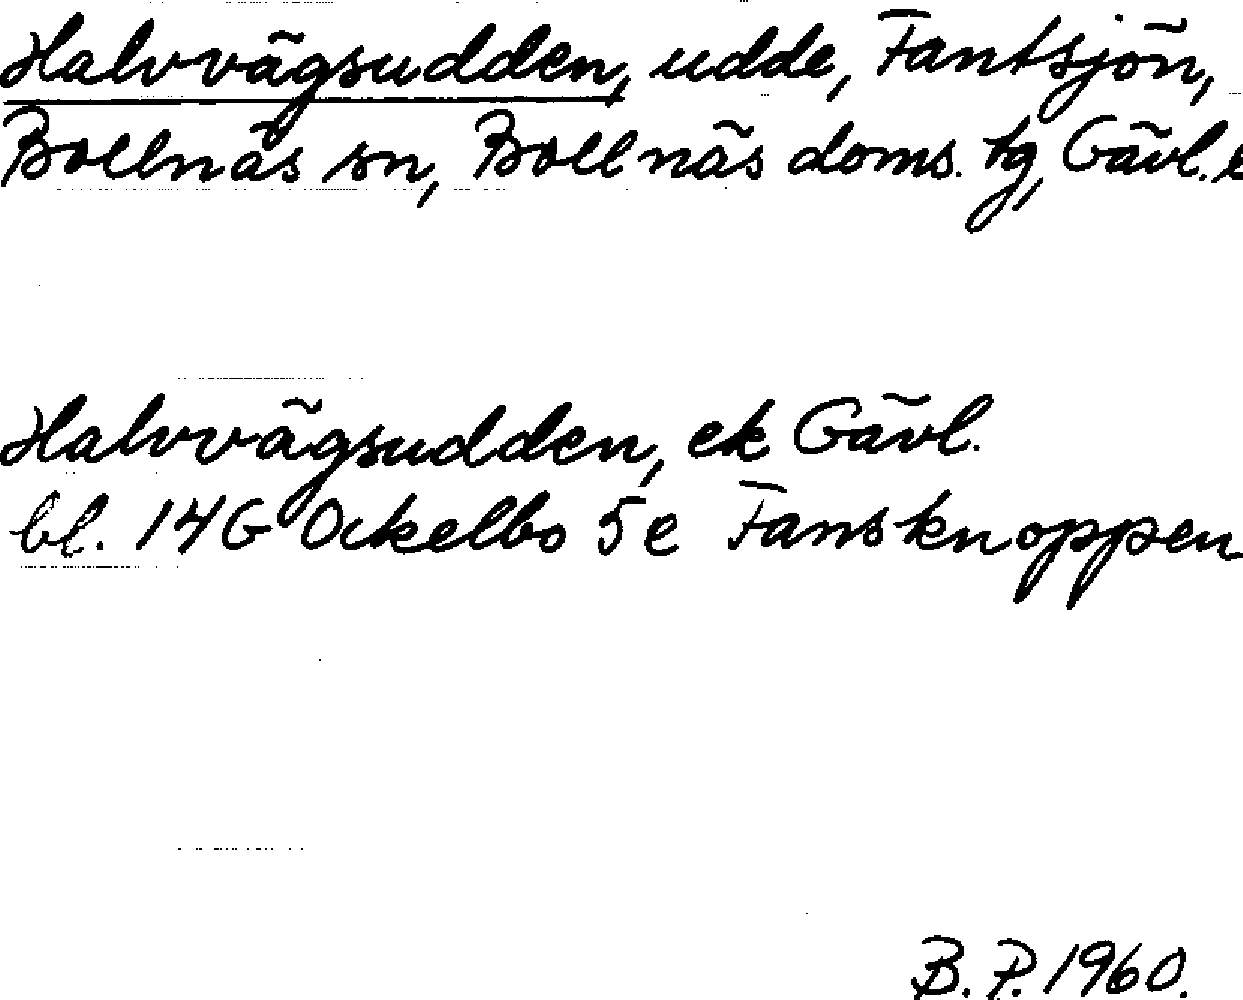 Halvvägsudden, udde, Fantsjön,
Bollnäs sn, Bollnäs doms. tg, Gävl.
Halvvägsudden, ek Gävl.
bl. 14G Ockelbo 5e Fansknoppen
B. P. 1960.